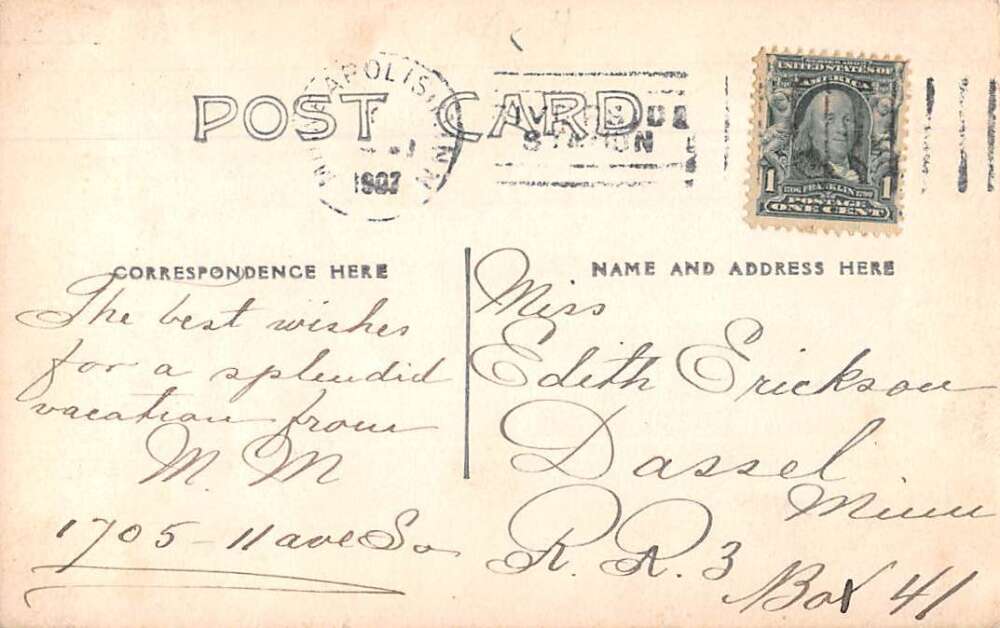 POST CARD
MINNEAPOLIS, MINN
1907
STATION
UNITED STATES OF
AMERICA
1 1706 FRANKLIN 1790 1
POSTAGE
ONE CENT
CORRESPONDENCE HERE
The best wishes
for a splendid
vacation from
M. M
1705 - 11 ave So
NAME AND ADDRESS HERE
Miss
Edith Erickson
Dassel
Minn
R. R. 3
Box 41